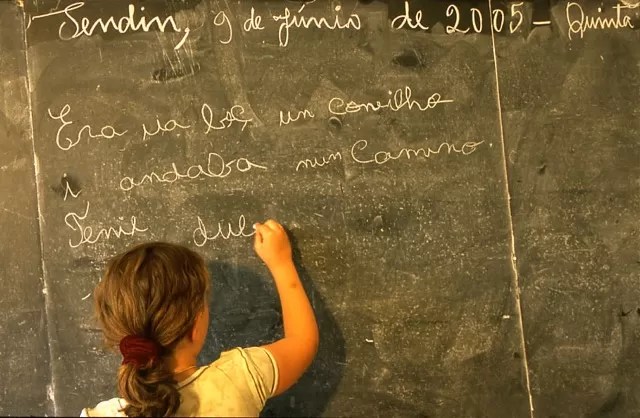 Sendin, 9 de Júnio de 2005 - Quinta
Era ua beç un coneilho
i andaba nun Camino
Teme que